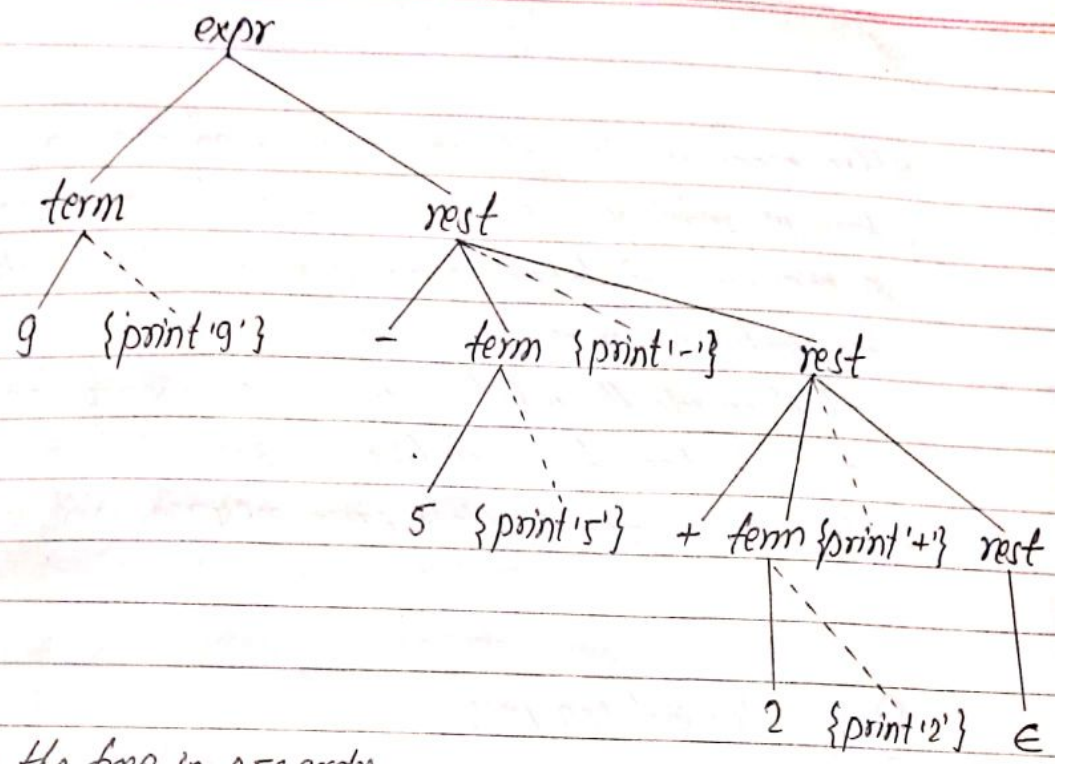 expr
term rest
9 {print '9'} - term {print '-'} rest
5 {print '5'} + term {print '+'} rest
2 {print '2'} ∈